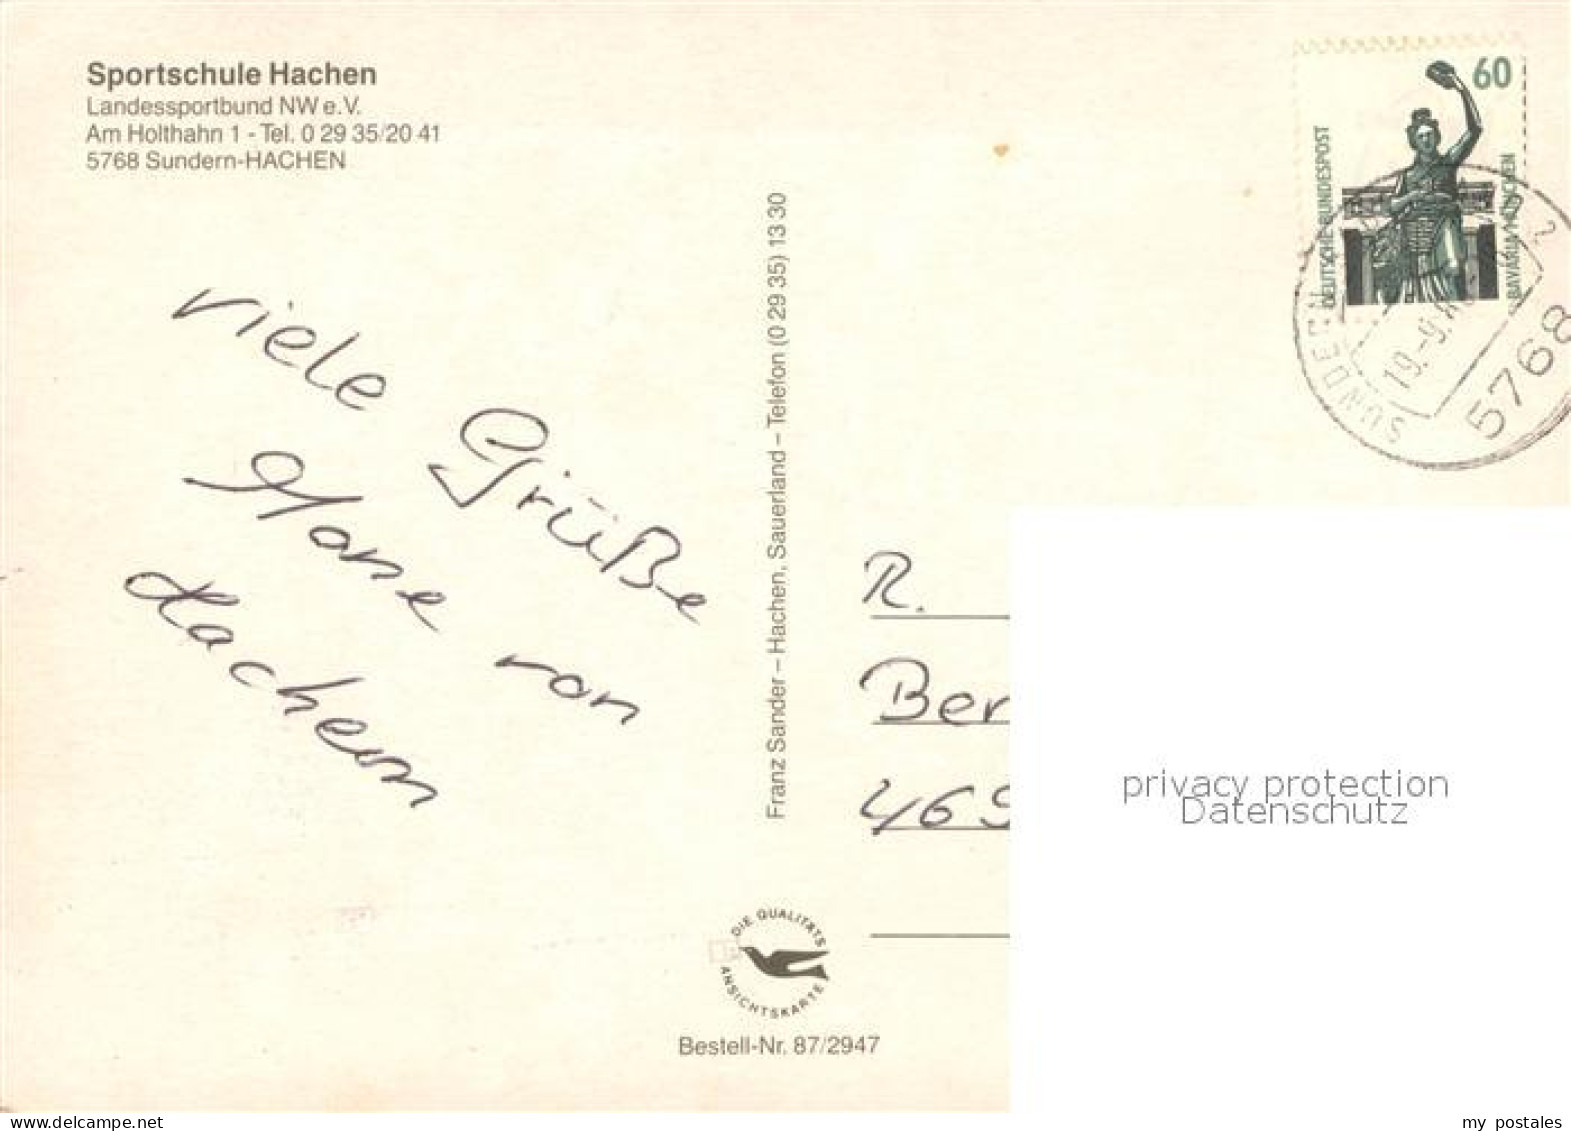 Sportschule Hachen
Landessportbund NW e.V.
Am Holthahn 1 - Tel. 0 29 35/20 41
5768 Sundern-HACHEN
60
DEUTSCHE BUNDESPOST
BAVARIA MÜNCHEN
SUNDERN
19.-9.
2
5768
viele Grüße
von
Hachen
Franz Sander – Hachen, Sauerland – Telefon (0 29 35) 13 30
R.
Ber
469
privacy protection
Datenschutz
DIE QUALITÄTS
ANSICHTSKARTE
Bestell-Nr. 87/2947
www.delcampe.net
my_postales